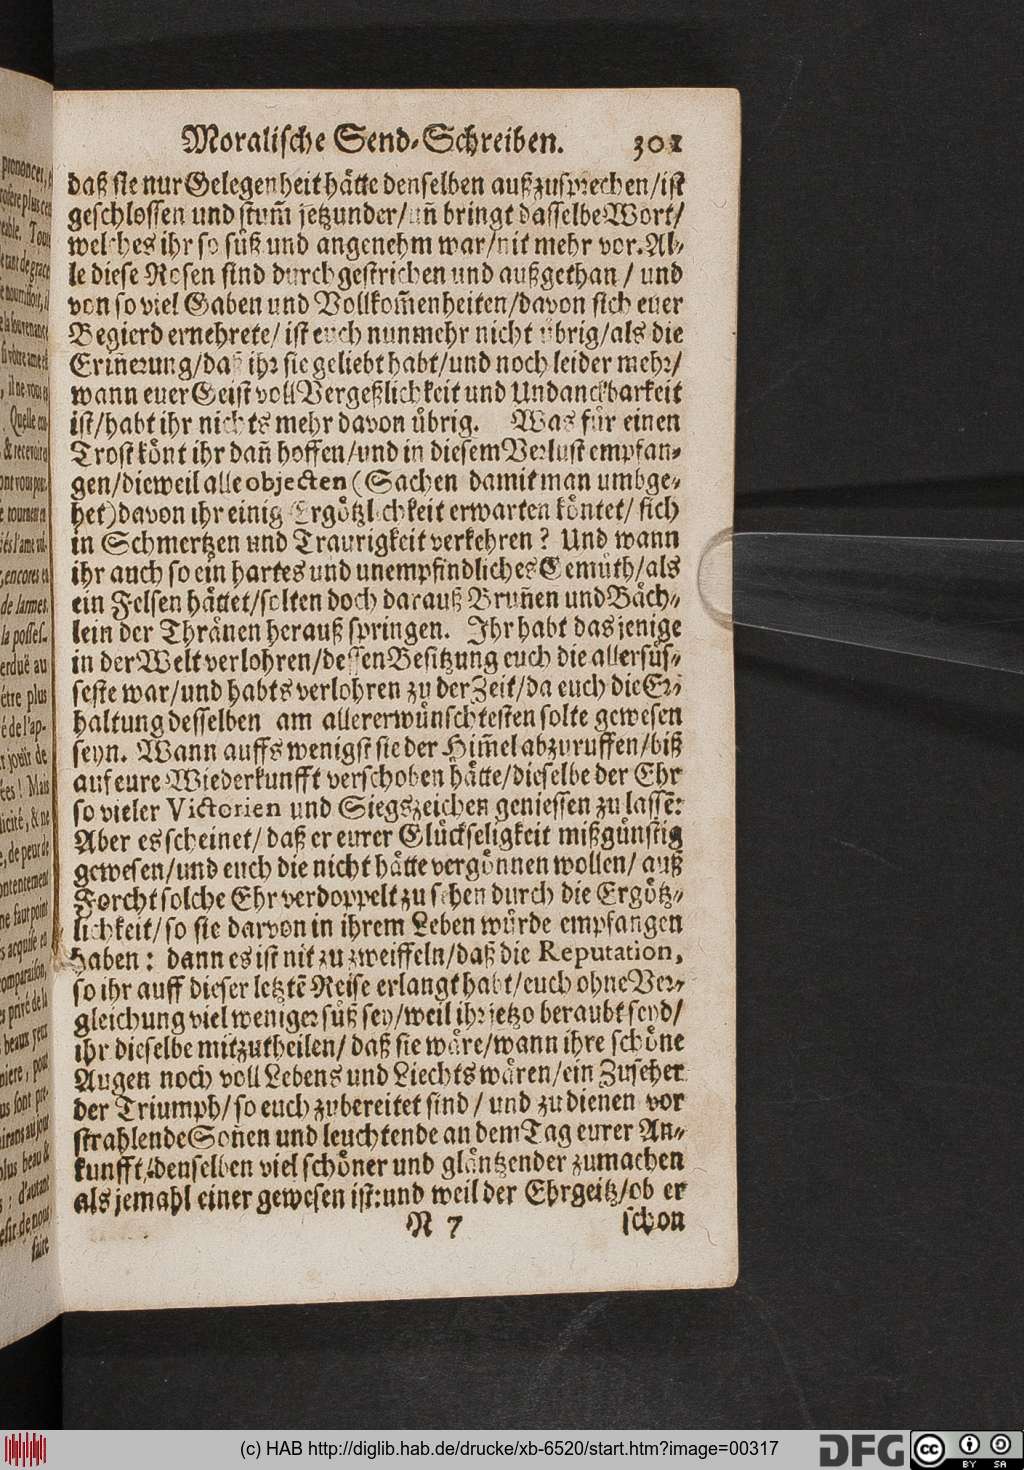 Moralische Send-Schreiben. 301
daß sie nur Gelegenheit hätte denselben außzusprechen/ist
geschlossen und stum̃ jetzunder/uñ bringt dasselbe Wort/
welches ihr so süß und angenehm war/nit mehr vor. Al-
le diese Rosen sind durchgestrichen und außgethan / und
von so viel Gaben und Vollkom̃enheiten/davon sich euer
Begierd ernehrete/ ist euch nunmehr nicht übrig/als die
Eriñerung/daß ihr sie geliebt habt/und noch leider mehr/
wann euer Geist voll Vergeßlichkeit und Undanckbarkeit
ist/habt ihr nichts mehr davon übrig. Was für einen
Trost könt ihr dañ hoffen/und in diesem Verlust empfan-
gen/dieweil alle objecten (Sachen damit man umbge-
het) davon ihr einig Ergötzlichkeit erwarten köntet/ sich
in Schmertzen und Traurigkeit verkehren? Und wann
ihr auch so ein hartes und unempfindliches Gemüth/als
ein Felsen hättet/solten doch darauß Bruñen und Bäch-
lein der Thränen herauß springen. Ihr habt das jenige
in der Welt verlohren/dessen Besitzung euch die allersüs-
seste war/und habts verlohren zu der Zeit/da euch die Er-
haltung desselben am allererwünschtesten solte gewesen
seyn. Wann auffs wenigst sie der Him̃el abzuruffen/biß
auf eure Wiederkunfft verschoben hätte/dieselbe der Ehr
so vieler Victorien und Siegszeichen geniessen zu lassē:
Aber es scheinet/ daß er eurer Glückseligkeit mißgünstig
gewesen/und euch die nicht hätte vergönnen wollen/ auß
Forcht solche Ehr verdoppelt zu sehen durch die Ergötz-
lichkeit/so sie darvon in ihrem Leben würde empfangen
haben: dann es ist nit zu zweiffeln/daß die Reputation,
so ihr auff dieser letztē Reise erlangt habt/euch ohne Ver-
gleichung viel weniger süß sey/weil ihr jetzo beraubt seyd/
ihr dieselbe mitzutheilen/ daß sie wäre/wann ihre schöne
Augen noch voll Lebens und Liechts wären/ein Zuseher
der Triumph/so euch zubereitet sind / und zu dienen vor
strahlende Soñen und leuchtende an dem Tag eurer An-
kunfft/denselben viel schöner und gläntzender zumachen
als jemahl einer gewesen ist:und weil der Ehrgeitz/ob er
N 7 schon
prononcer,
Tous
Quelle
de larmes.
la posses-
erduë au
être plus
é de l'ap-
jouïr de
Mais
licité, & ne
, de peur de
ontentement
ne faut point
s acquise en
comparaison,
privé de la
beaux yeux
niere, pour
us sont pre-
plus beau &
d'autant
faire
(c) HAB http://diglib.hab.de/drucke/xb-6520/start.htm?image=00317
DFG
cc BY SA